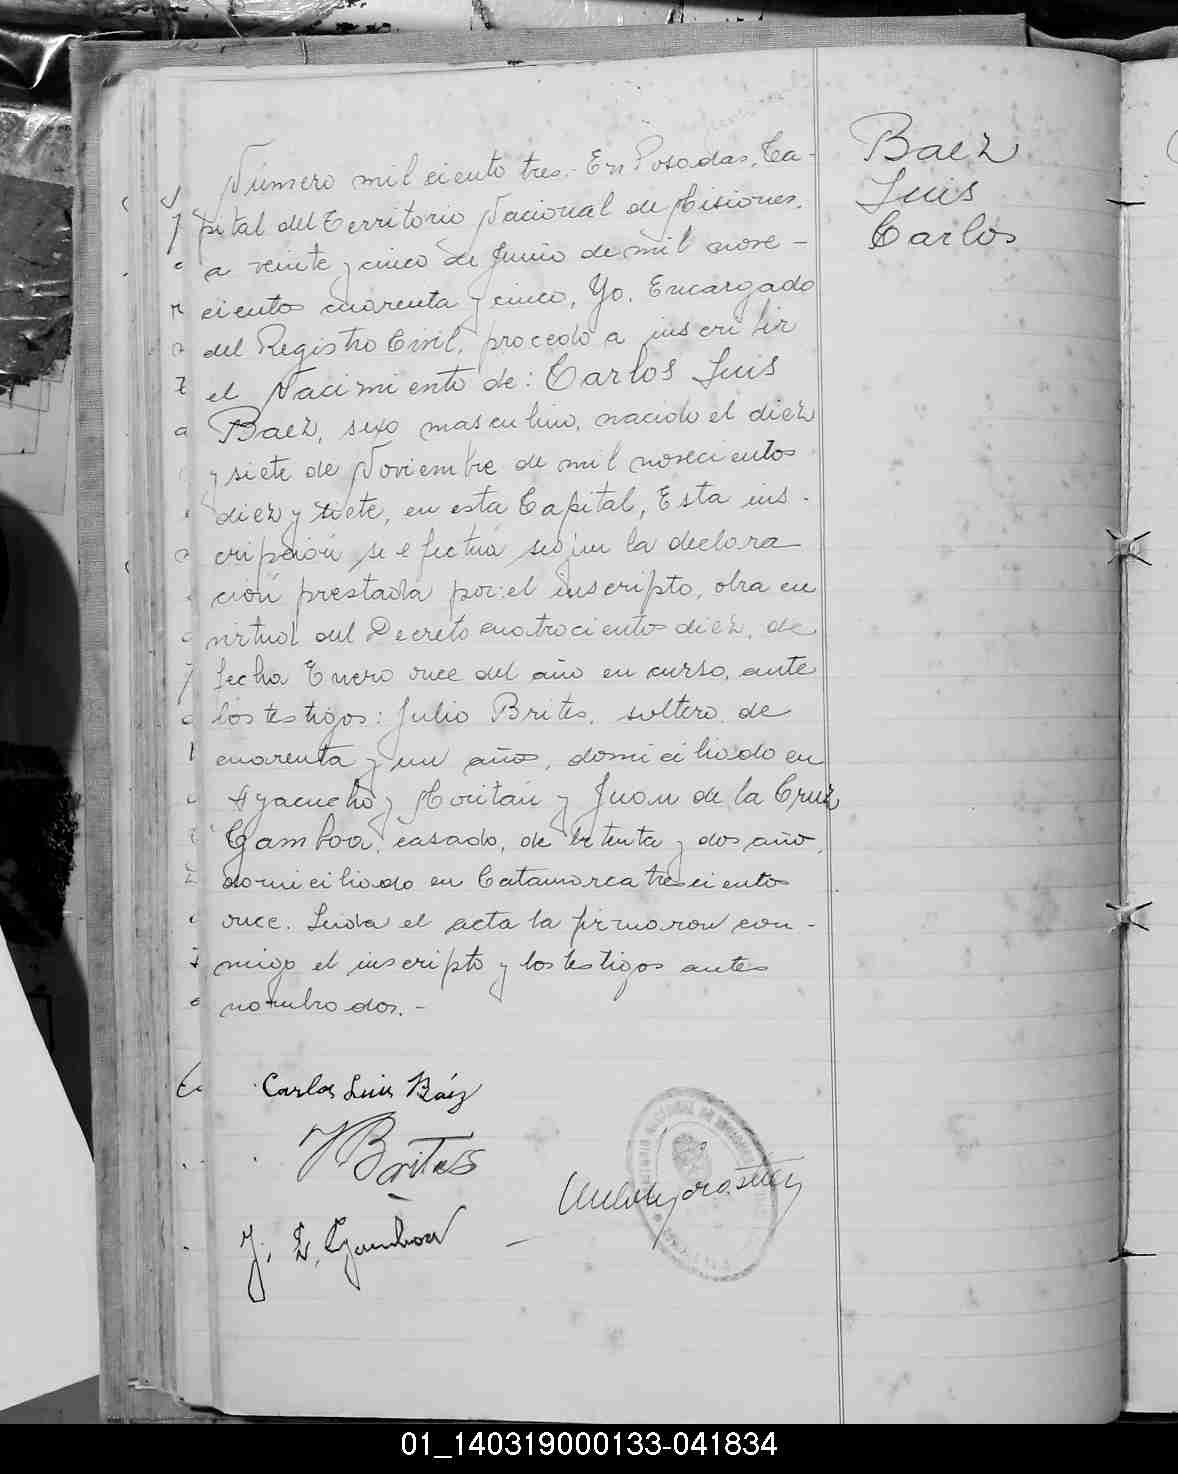 Baez
Luis
Carlos
Número mil ciento tres.- En Posadas, Ca-
pital del Territorio Nacional de Misiones,
a veinte y cinco de Junio de mil nove-
cientos cuarenta y cinco, Yo, Encargado
del Registro Civil, procedo a inscribir
el Nacimiento de: Carlos Luis
Baez, sexo masculino, nacido el diez
y siete de Noviembre de mil novecientos
diez y siete, en esta Capital, Esta ins-
cripción se efectua según la declara
ción prestada por: el inscripto, obra en
virtud del Decreto cuatrocientos diez, de
fecha Enero once del año en curso, ante
los testigos: Julio Brites, soltero, de
cuarenta y un años, domiciliado en
Ayacucho y Moritán y Juan de la Cruz
Gamboa, casado, de setenta y dos año,
domiciliado en Catamarca trescientos
once. Leida el acta la firmaron con-
migo el inscripto y los testigos antes
nombrados.-
Carlos Luis Báez
J Brites
J. L. Gamboa
01_140319000133-041834